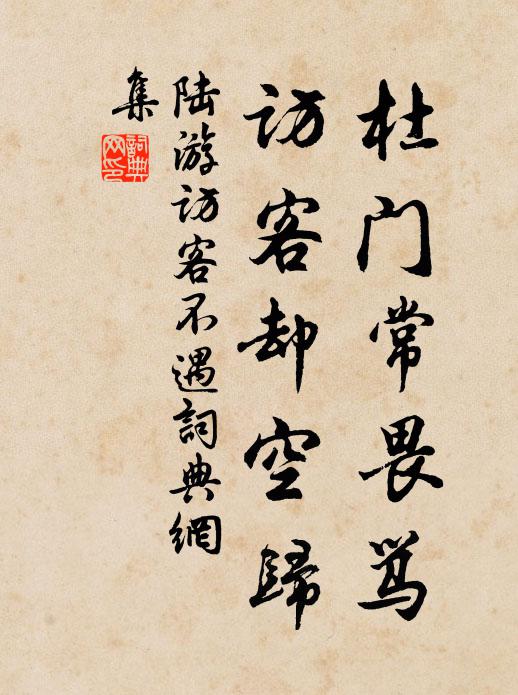 杜门常畏骂
访客却空歸
陆游访客不遇詞典網
集
詞典网印